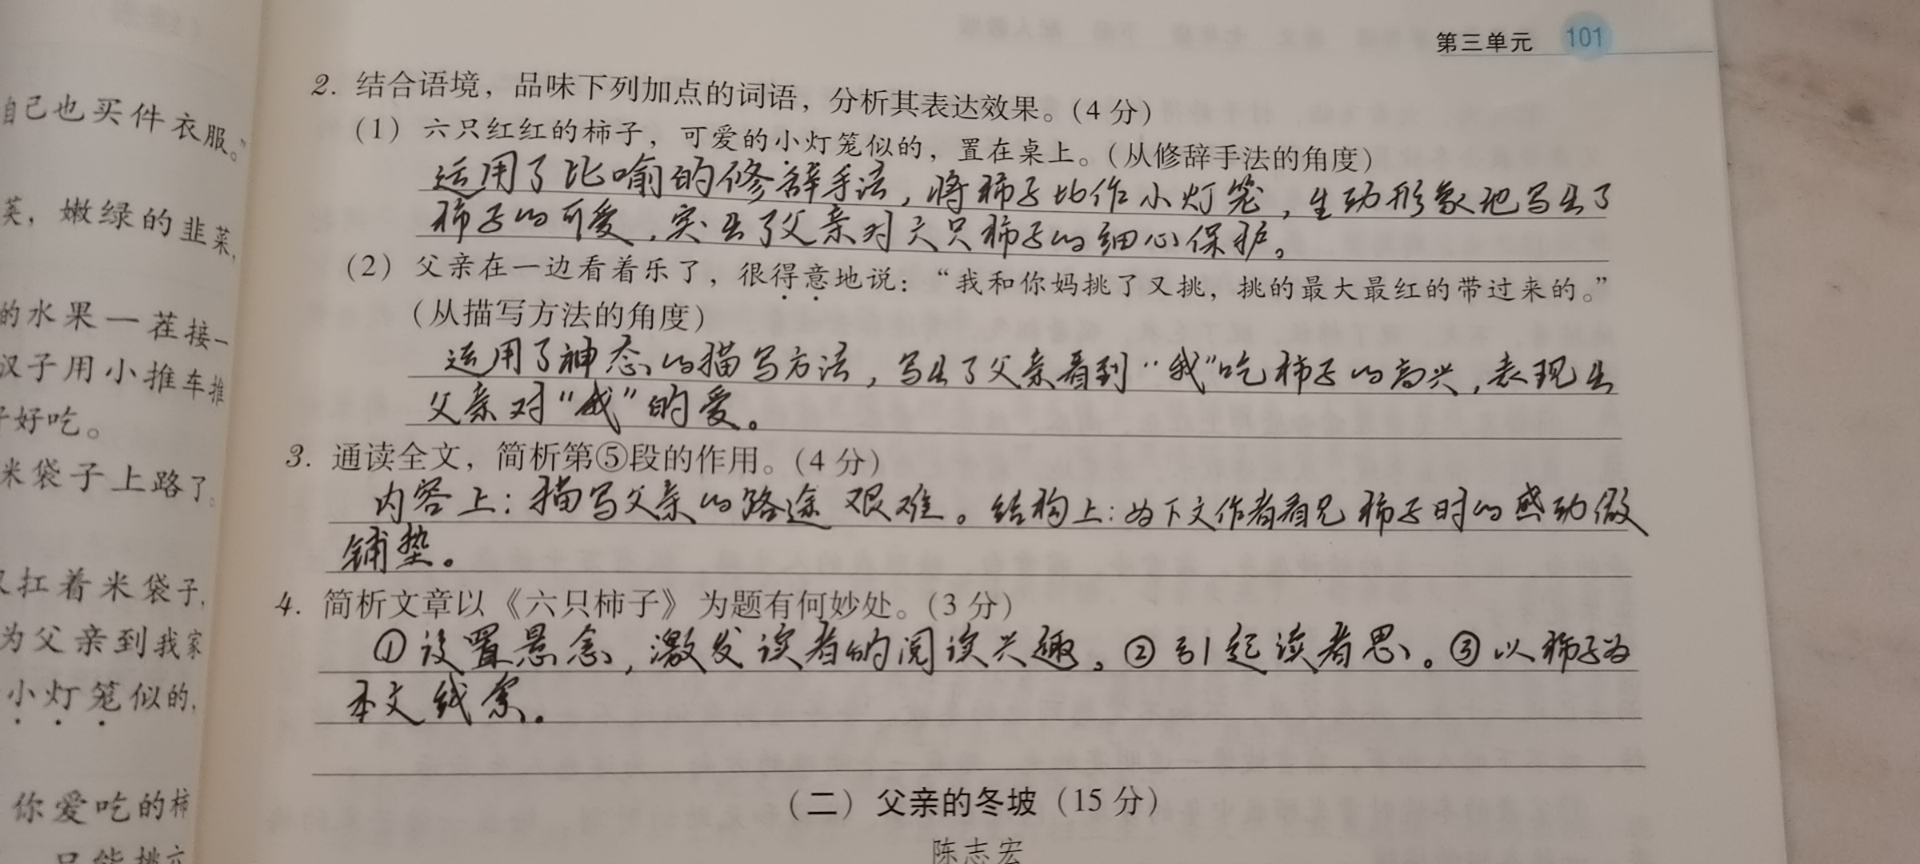 第三单元 101
自己也买件衣服。”
嫩绿的韭菜,
的水果一茬接一
汉子用小推车推
子好吃。
米袋子上路了。
扛着米袋子,
为父亲到我家
小灯笼似的,
你爱吃的柿
2. 结合语境，品味下列加点的词语，分析其表达效果。(4 分)
(1) 六只红红的柿子，可爱的小灯笼似的，置在桌上。(从修辞手法的角度)
运用了比喻的修辞手法，将柿子比作小灯笼，生动形象地写出了
柿子的可爱，突出了父亲对六只柿子的细心保护。
(2) 父亲在一边看着乐了，很得意地说：“我和你妈挑了又挑，挑的最大最红的带过来的。”
(从描写方法的角度)
运用了神态的描写方法，写出了父亲看到“我”吃柿子的高兴，表现出
父亲对“我”的爱。
3. 通读全文，简析第⑤段的作用。(4 分)
内容上：描写父亲的路途艰难。结构上：为下文作者看见柿子时的感动做
铺垫。
4. 简析文章以《六只柿子》为题有何妙处。(3 分)
①设置悬念，激发读者的阅读兴趣。②引起读者思。③以柿子为
本文线索。
(二) 父亲的冬坡 (15 分)
陈志宏